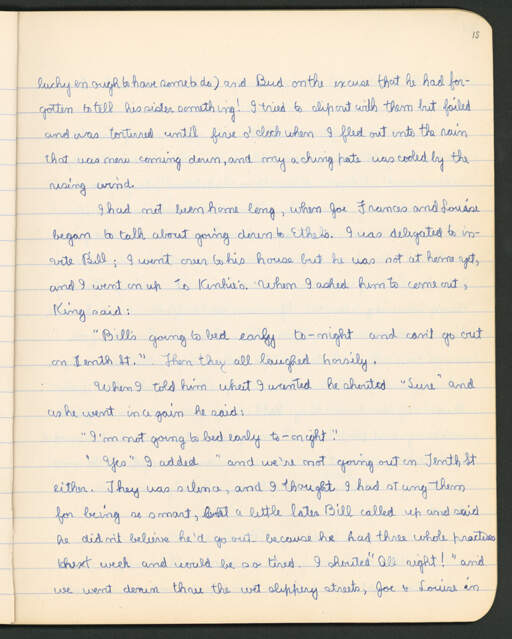 15
lucky enough to have some to do) and Bud on the excuse that he had for-
gotten to tell his sister something! I tried to slip out with them but failed
and was tortured until five o'clock when I fled out into the rain
that was now coming down, and my aching pate was cooled by the
rising wind.
I had not been home long, when Joe Frances and Louise
began to talk about going down to Ethel's. I was delegated to in-
vite Bill; I went over to his house but he was not at home yet,
and I went on up to Kinkie's. When I asked him to come out,
King said:
"Bill's going to bed early to-night and can't go out
on Tenth St.". Then they all laughed horsily.
When I told him what I wanted he shouted "Sure" and
as he went in again he said:
"I'm not going to bed early to-night".
"Yes" I added "and we're not going out on Tenth St
either. They was silence, and I thought I had stung them
for being so smart, but a little later Bill called up and said
he didn't believe he'd go out because he had three whole practises
next week and would be so tired. I shouted "All right!" and
we went down three the wet slippery streets, Joe & Louise in